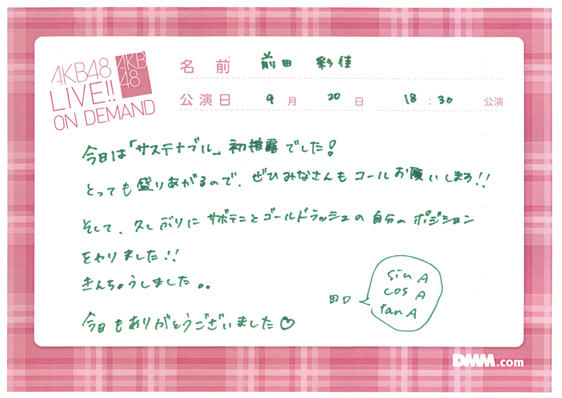 AKB48
LIVE!!
ON DEMAND
AKB
48
名前 前田 彩佳
公演日 9月 20日 18:30 公演
今日は「サステナブル」初披露でした!
とっても盛りあがるので、ぜひみなさんもコールお願いします!!
そして、久しぶりにサボテンとゴールドラッシュの自分のポジション
をやりました!!
きんちょうしました。。
田口
sin A
cos A
tan A
今日もありがとうございました♡
DMM.com